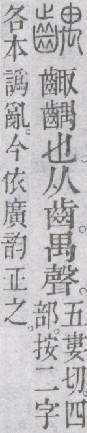 齵 齱齵也。从齒。禺聲。五婁切。四
部。按二字
各本譌亂。今依廣韵正之。